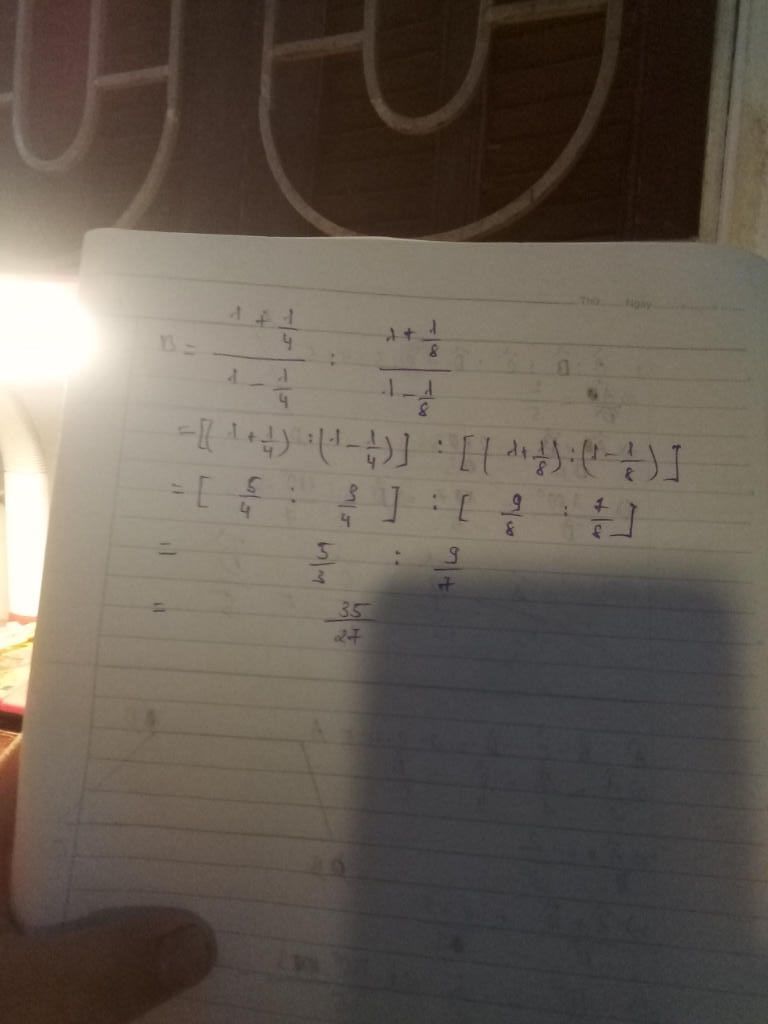 Thứ Ngày
B = (1 + 1/4)/(1 - 1/4) : (1 + 1/8)/(1 - 1/8)
= [(1 + 1/4) : (1 - 1/4)] : [(1 + 1/8) : (1 - 1/8)]
= [5/4 : 3/4] : [9/8 : 7/8]
= 5/3 : 9/7
= 35/27